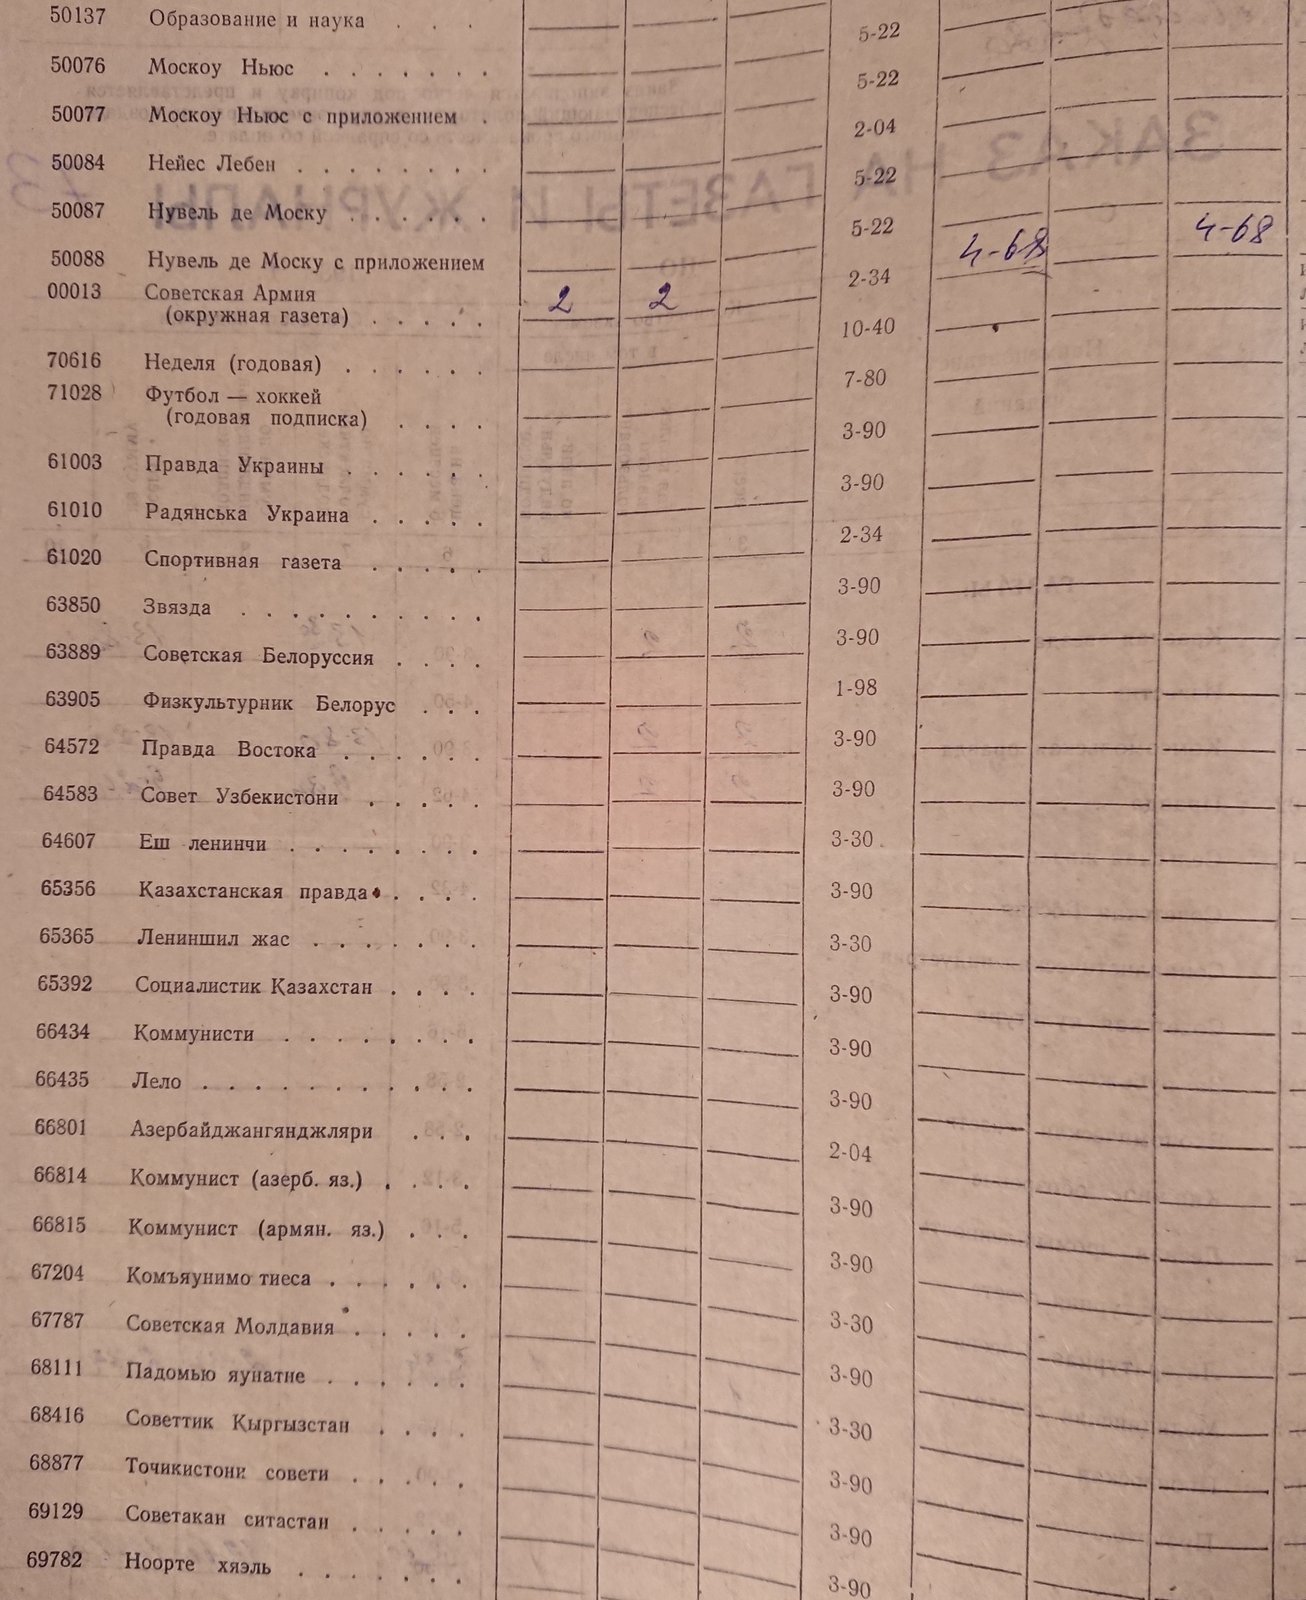 50137 Образование и наука . . .
50076 Москоу Ньюс . . . . . . . 5-22
50077 Москоу Ньюс с приложением . 5-22
50084 Нейес Лебен . . . . . . . . 2-04
50087 Нувель де Моску . . . . . . 5-22
50088 Нувель де Моску с приложением 5-22
00013 Советская Армия
(окружная газета) . . . . . 2 2 2-34 4-68 4-68
70616 Неделя (годовая) . . . . . . 10-40
71028 Футбол — хоккей
(годовая подписка) . . . . 7-80
61003 Правда Украины . . . . . . 3-90
61010 Радянська Украина . . . . . 3-90
61020 Спортивная газета . . . . . 2-34
63850 Звязда . . . . . . . . . . 3-90
63889 Советская Белоруссия . . . . 3-90
63905 Физкультурник Белорус . . . 1-98
64572 Правда Востока . . . . . . 3-90
64583 Совет Узбекистони . . . . . 3-90
64607 Еш ленинчи . . . . . . . . 3-30
65356 Казахстанская правда . . . . 3-90
65365 Лениншил жас . . . . . . . 3-30
65392 Социалистик Қазахстан . . . . 3-90
66434 Коммунисти . . . . . . . . 3-90
66435 Лело . . . . . . . . . . . 3-90
66801 Азербайджангянджляри . . . 2-04
66814 Коммунист (азерб. яз.) . . . . 3-90
66815 Коммунист (армян. яз.) . . . 3-90
67204 Комъяунимо тиеса . . . . . . 3-30
67787 Советская Молдавия . . . . . 3-90
68111 Падомью яунатне . . . . . . 3-30
68416 Советтик Қыргызстан . . . . 3-90
68877 Точикистони совети . . . . . 3-90
69129 Советакан ситастан . . . . . 3-90
69782 Ноорте хяэль . . . . . . .